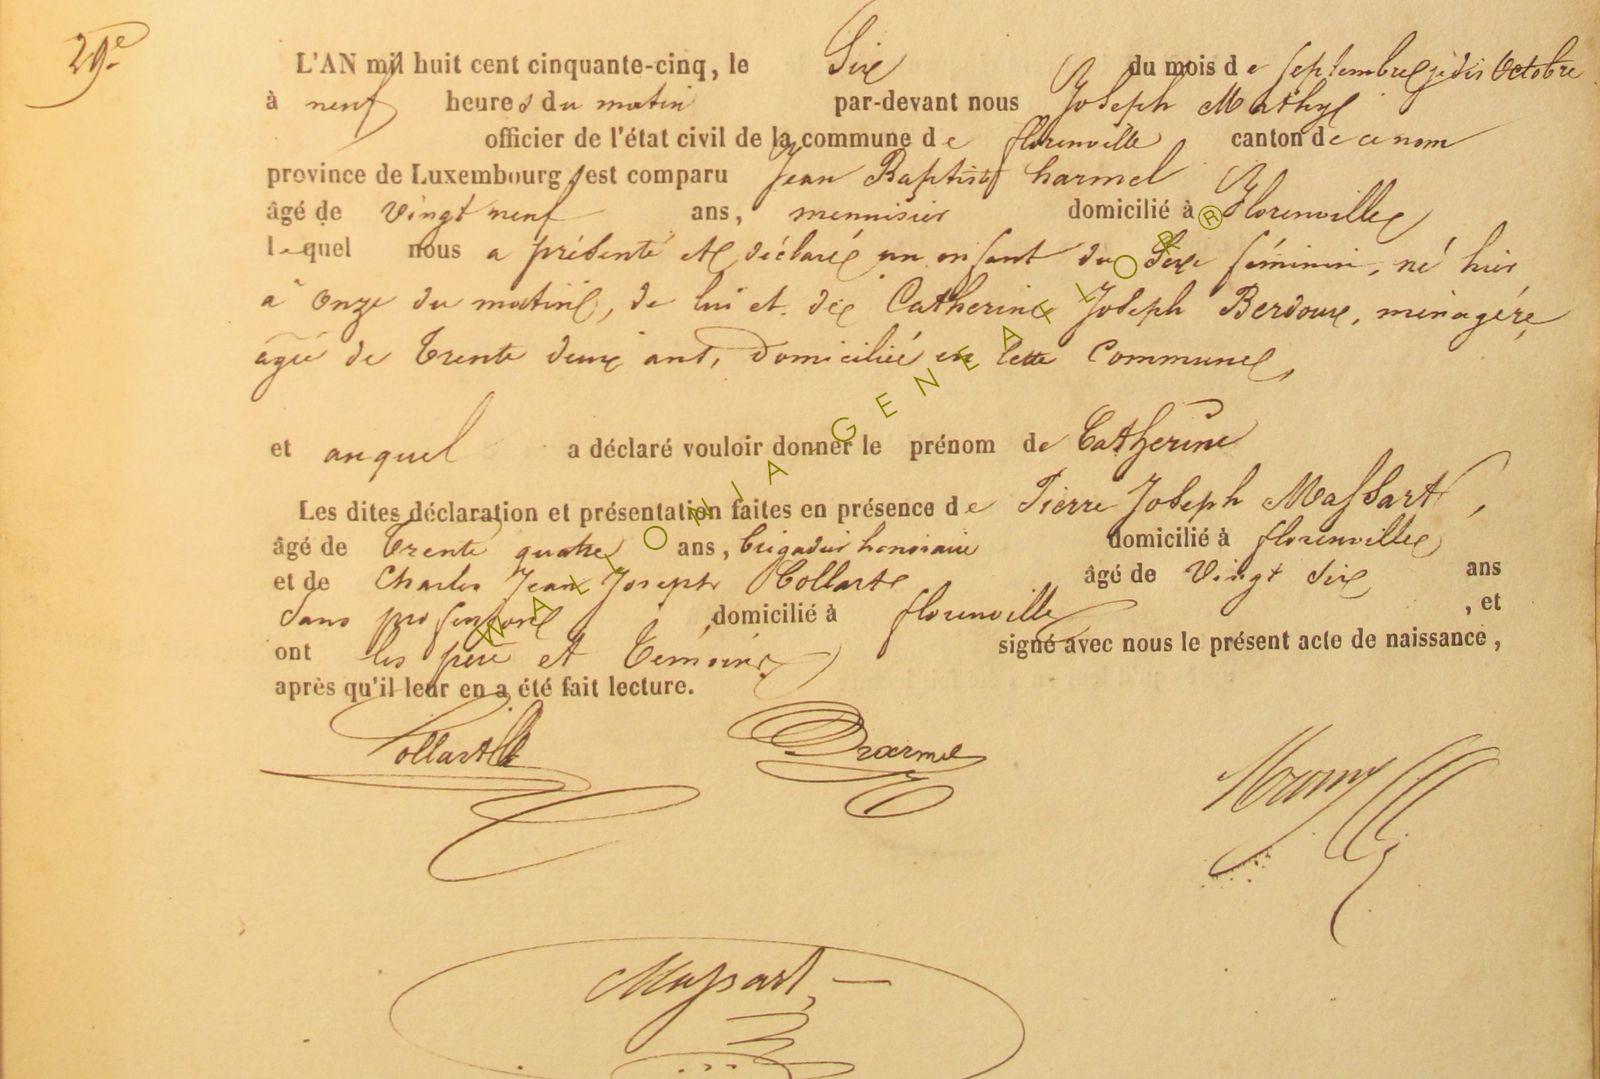 29e
L'AN mil huit cent cinquante-cinq, le Six du mois de septembre, je dis Octobre
à neuf heures du matin par-devant nous Joseph Mathys
officier de l'état civil de la commune de florenville canton de ce nom
province de Luxembourg, est comparu Jean Baptiste harmel
âgé de Vingt neuf ans, menuisier domicilié à Florenville
lequel nous a présenté et déclaré un enfant du Sexe féminin, né hier
à onze du matin, de lui et de Catherine Joseph Berdoux, ménagère
agée de Trente deux ans, Domiciliée en cette Commune,
et auquel a déclaré vouloir donner le prénom de Catherine
Les dites déclaration et présentation faites en présence de Pierre Joseph Massart,
âgé de Trente quatre ans, brigadier honoraire domicilié à florenville
et de Charles Jean Joseph Collart âgé de Vingt Six ans
Sans profession domicilié à florenville, et
ont les père et Témoins signé avec nous le présent acte de naissance,
après qu'il leur en a été fait lecture.
Collart Harmel
Massart
WALLONIA GENEALOR®